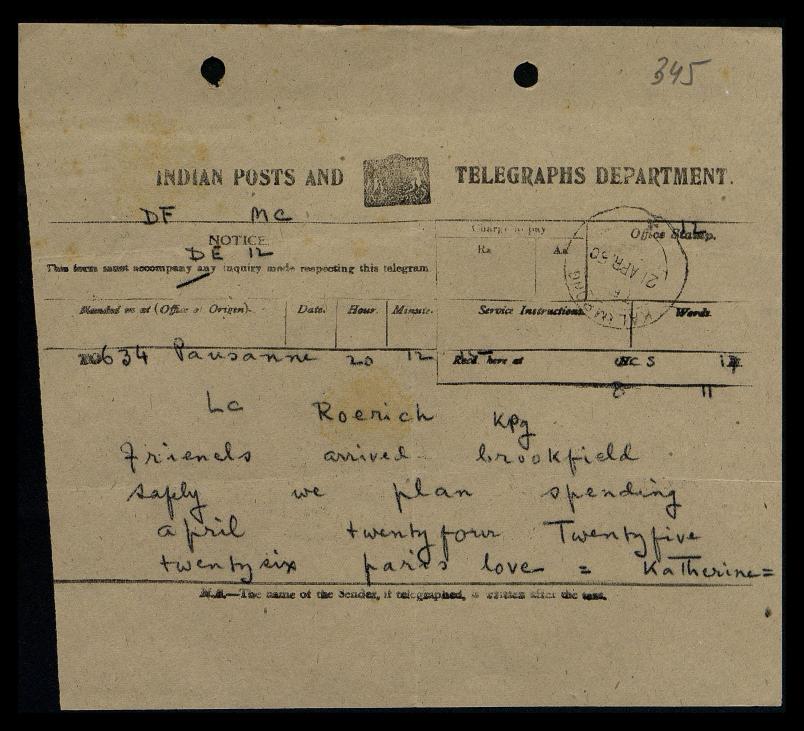 345
INDIAN POSTS AND TELEGRAPHS DEPARTMENT.
DF MC
NOTICE
DE 12
This form must accompany any inquiry made respecting this telegram.
Charge to pay
Rs. As.
Office Stamp.
12
21 APR. 50
Handed in at (Office of Origin). Date. Hour. Minute. Service Instructions. Words.
634 Pausanne 20 12 15 Recd. here at
8 11
LC Roerich Kpg
Friends arrived brookfield
safly we plan spending
april twentyfour Twentyfive
twentysix paris love = Katherine=
N.B.—The name of the Sender, if telegraphed, is written after the text.